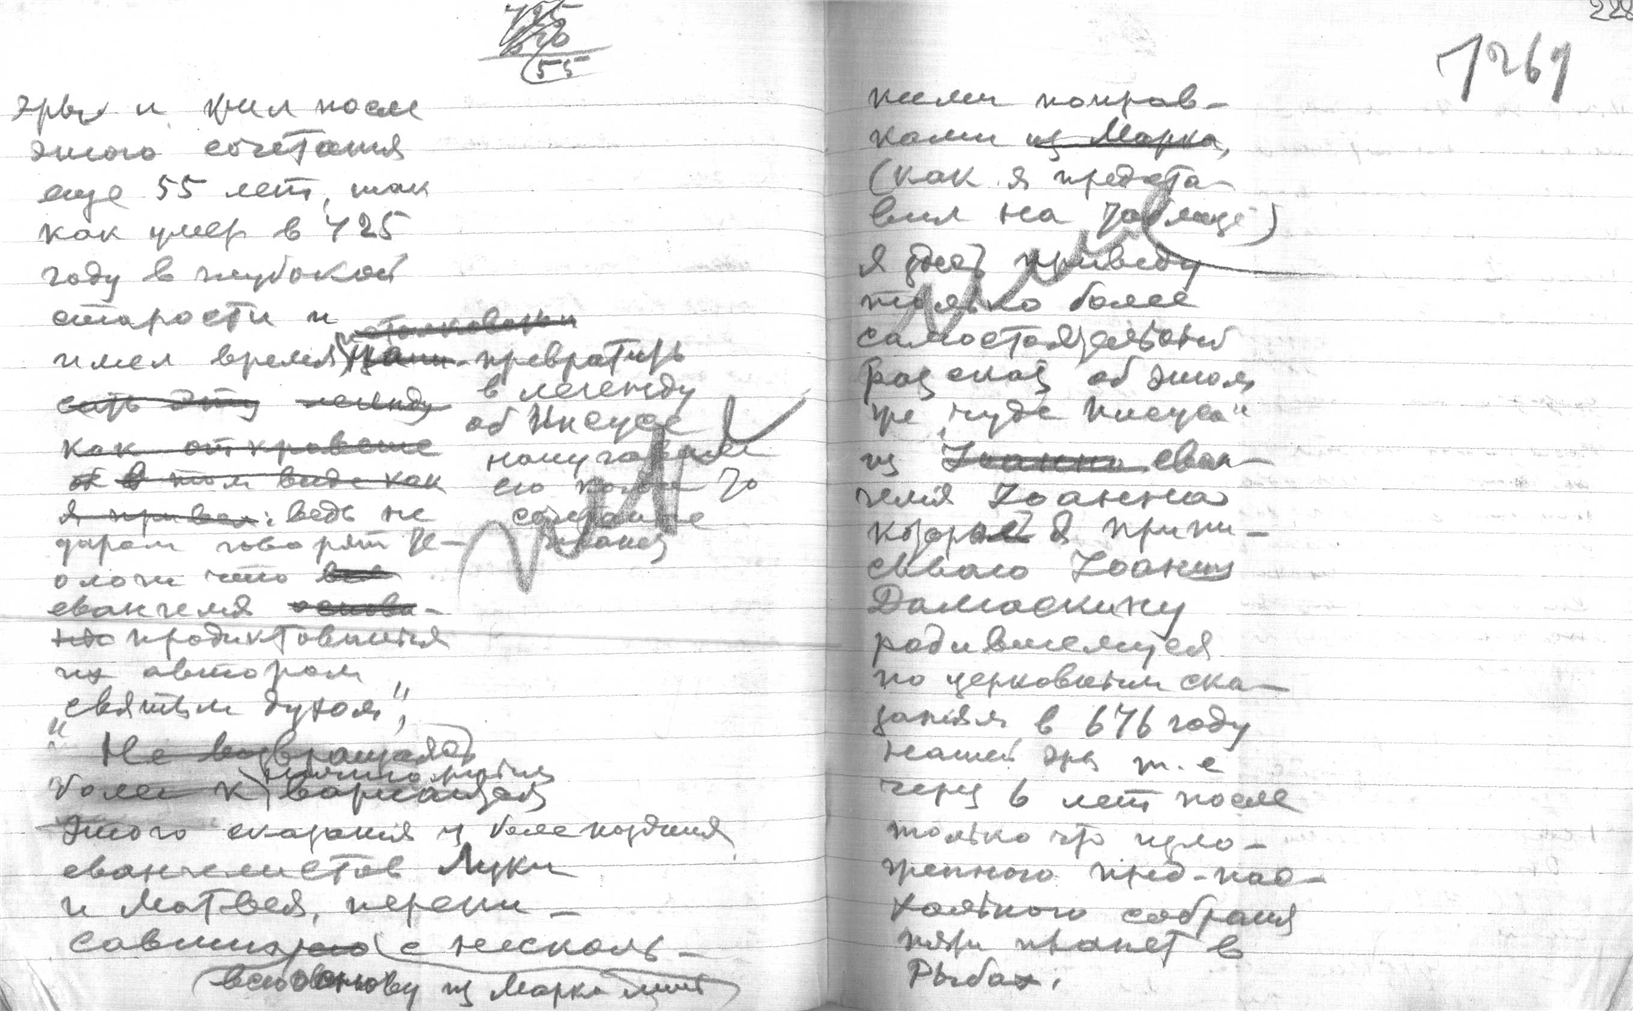 725
670
55
эры и жил после
этого сочетания
еще 55 лет, так
как умер в 725
году в глубокой
старости и
имел время превратить
в легенду
об Иисусе
его
ведь не
даром говорят те-
ологи что все
евангелия основа-
но продиктованы
их авторам
"святым духом",
Не возвращаясь
более к вариациям
этого сказания у более поздних
евангелистов Луки
и Матвея, перепи-
савших его с несколь-
всю основу из Марка лишь
228
1261
кими поправ-
ками из Марка,
(как я предста-
вил на таблице)
я здесь приведу
только более
самостоятельный
рассказ об этом
же "чуде Иисуса"
из Иоанна еван-
гелия Иоанна
который я припи-
сываю Иоанну
Дамаскину
родившемуся
по церковным ска-
заниям в 676 году
нашей эры т.е
через 6 лет после
только что изло-
женного пред-пас-
хального собрания
пяти планет в
Рыбах.